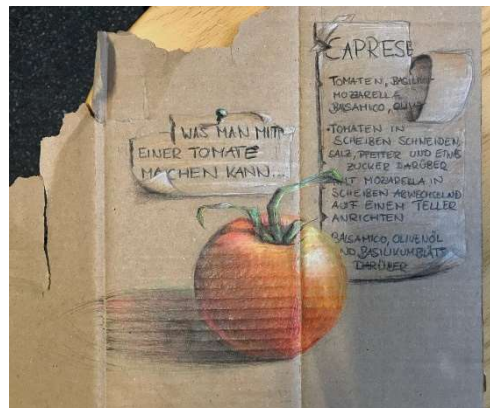 WAS MAN MIT
EINER TOMATE
MACHEN KANN...
CAPRESE
TOMATEN, BASILIKUM
MOZZARELLA
BALSAMICO, OLIV
TOMATEN IN
SCHEIBEN SCHNEIDEN
SALZ, PFEFFER UND ETWAS
ZUCKER DARÜBER
MIT MOZARELLA IN
SCHEIBEN ABWECHSELND
AUF EINEM TELLER
ANRICHTEN
BALSAMICO, OLIVENÖL
UND BASILIKUMBLATT
DARÜBER